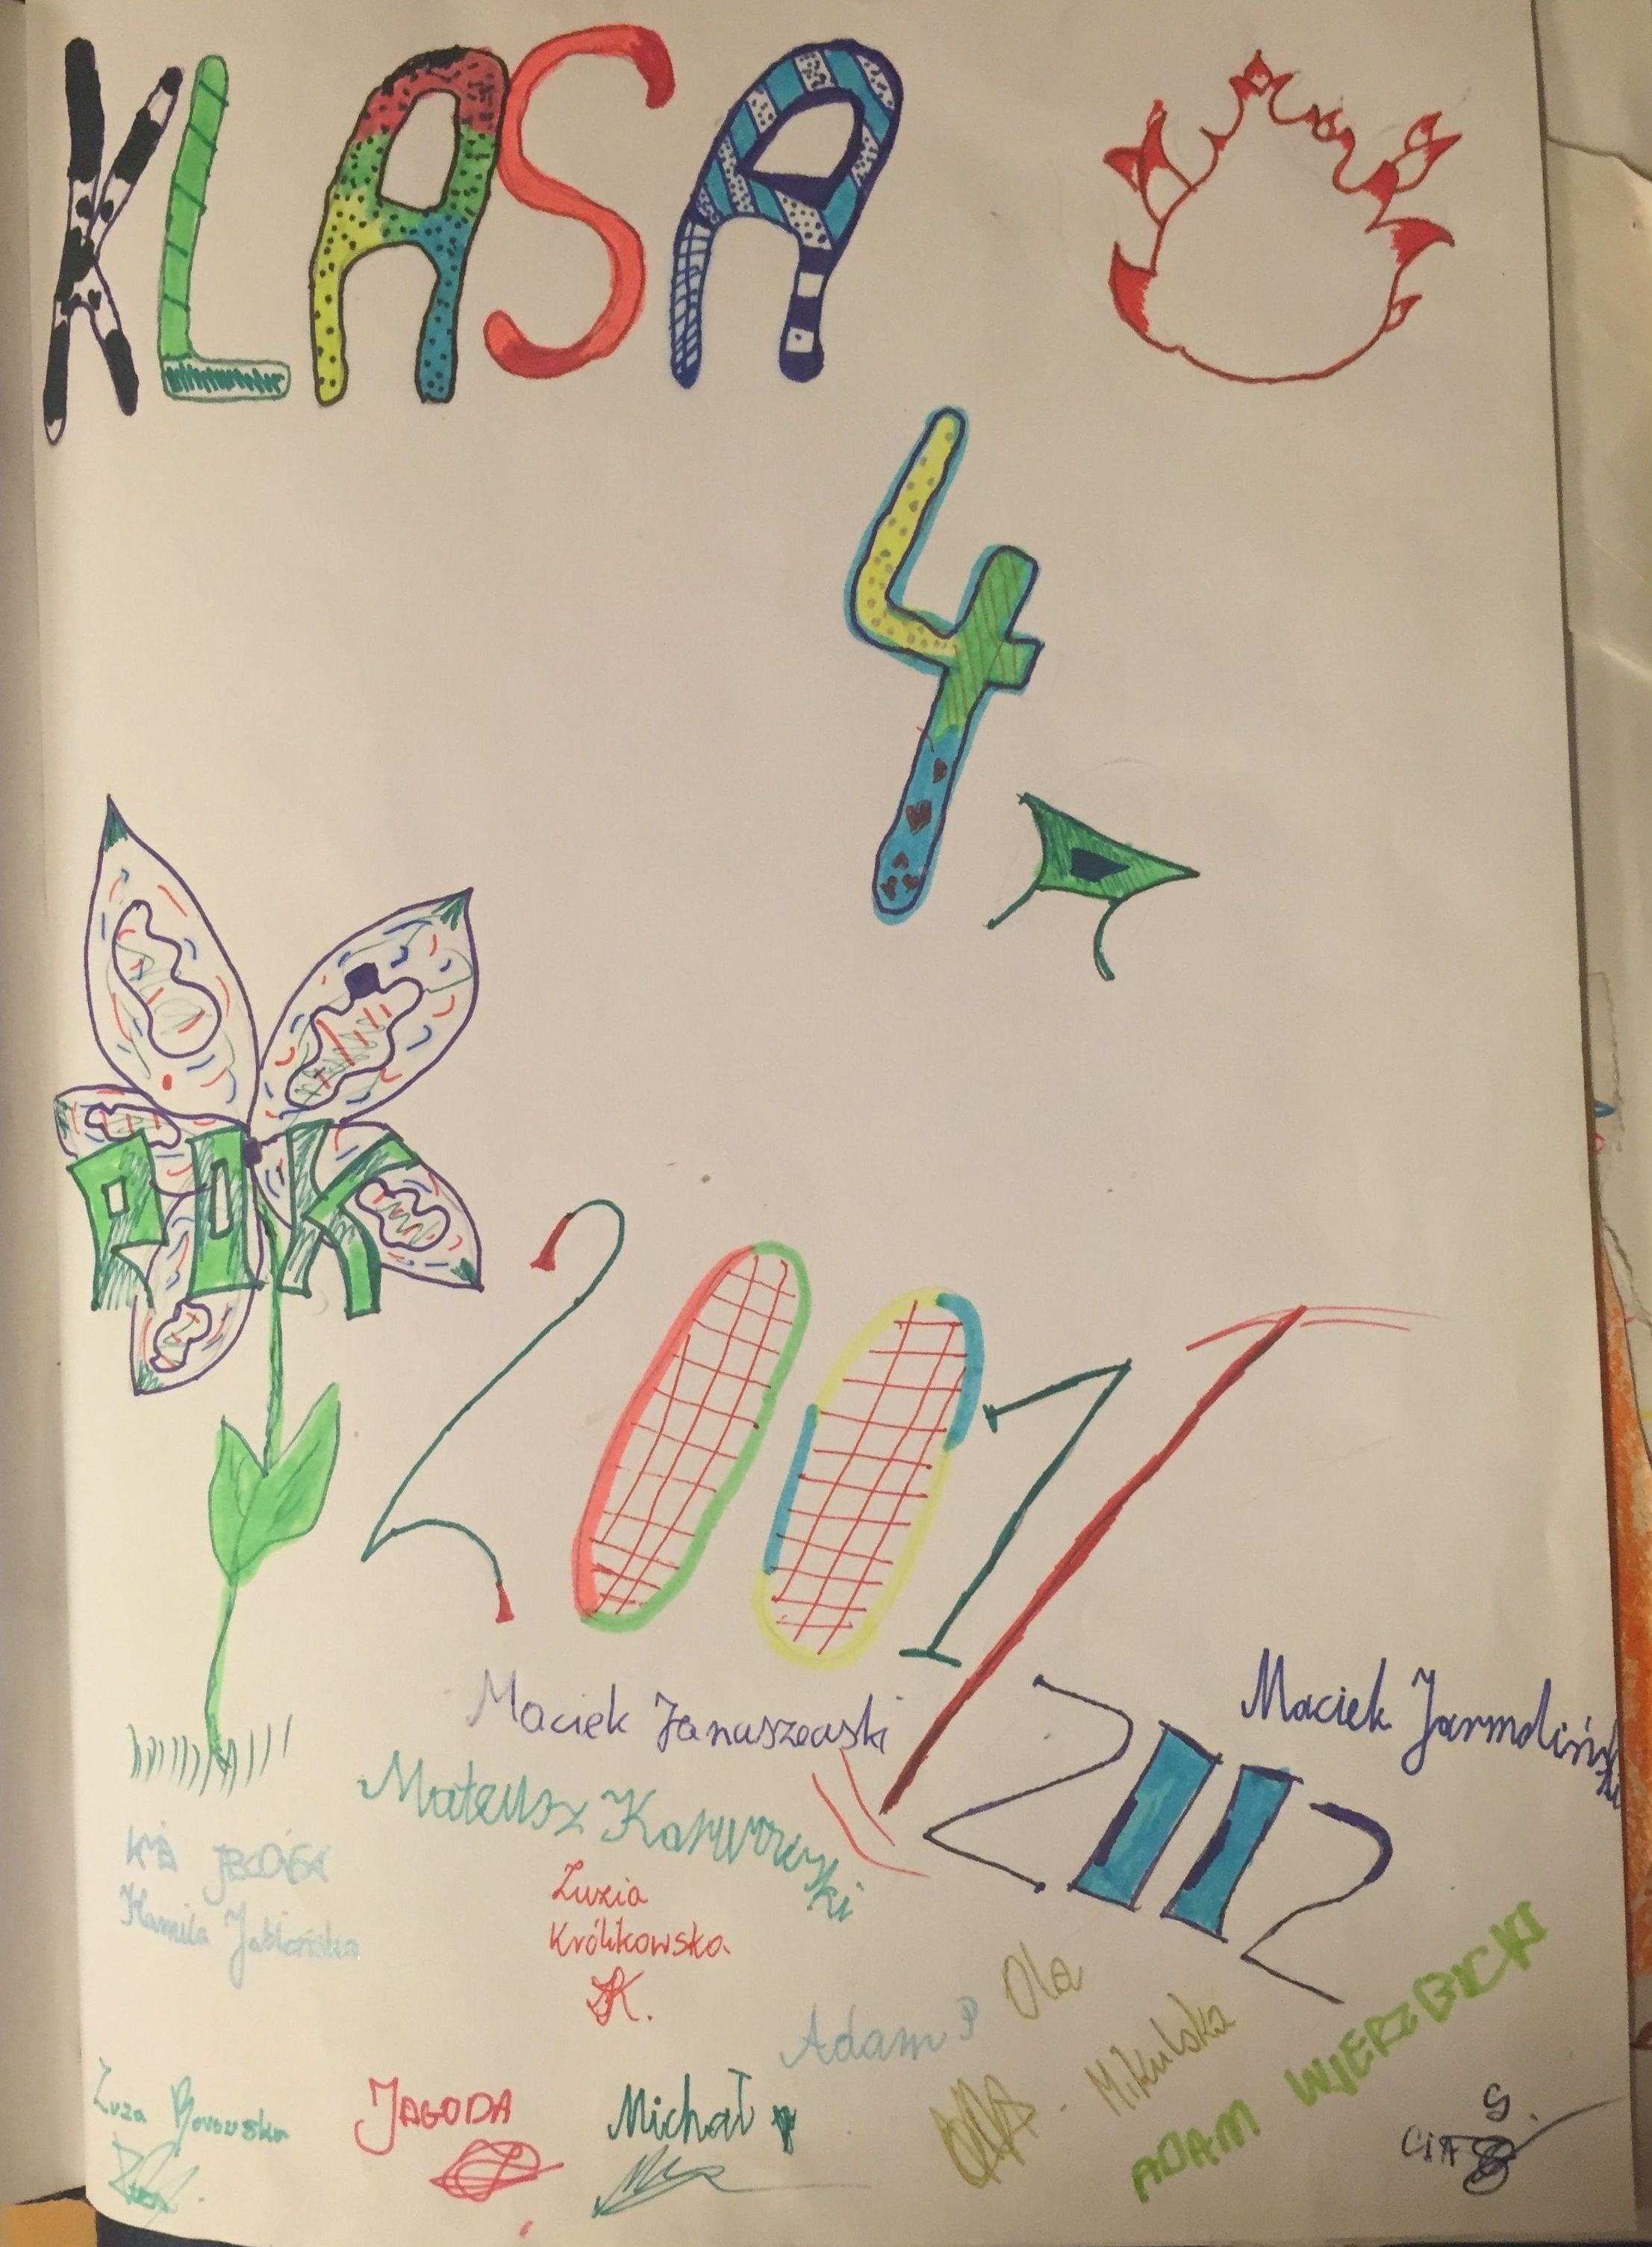 KLASA
4
ROK
2001/
2002
Maciek Januszewski
Maciek Jarmoliński
Mateusz
Kamila Jabłońska
Zuzia
Królikowska
ZK.
Adam P
Ola
Mikulska
ADAM WIERZBICKI
Zuza Borowska
JAGODA
Michał